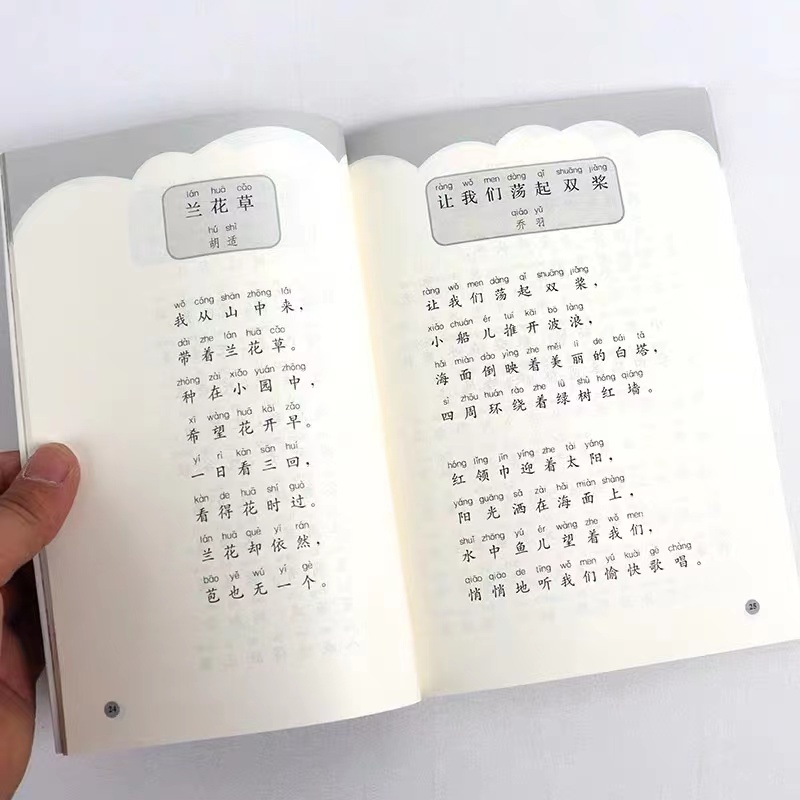 lán huā cǎo
兰花草
hú shì
胡适
wǒ cóng shān zhōng lái
我从山中来，
dài zhe lán huā cǎo
带着兰花草。
zhòng zài xiǎo yuán zhōng
种在小园中，
xī wàng huā kāi zǎo
希望花开早。
yí rì kàn sān huí
一日看三回，
kàn de huā shí guò
看得花时过。
lán huā què yī rán
兰花却依然，
bāo yě wú yí gè
苞也无一个。
24
ràng wǒ men dàng qǐ shuāng jiǎng
让我们荡起双桨
qiáo yǔ
乔羽
ràng wǒ men dàng qǐ shuāng jiǎng
让我们荡起双桨，
xiǎo chuán ér tuī kāi bō làng
小船儿推开波浪，
hǎi miàn dào yìng zhe měi lì de bái tǎ
海面倒映着美丽的白塔，
sì zhōu huán rào zhe lǜ shù hóng qiáng
四周环绕着绿树红墙。
hóng lǐng jīn yíng zhe tài yáng
红领巾迎着太阳，
yáng guāng sǎ zài hǎi miàn shàng
阳光洒在海面上，
shuǐ zhōng yú ér wàng zhe wǒ men
水中鱼儿望着我们，
qiāo qiāo de tīng wǒ men yú kuài gē chàng
悄悄地听我们愉快歌唱。
25